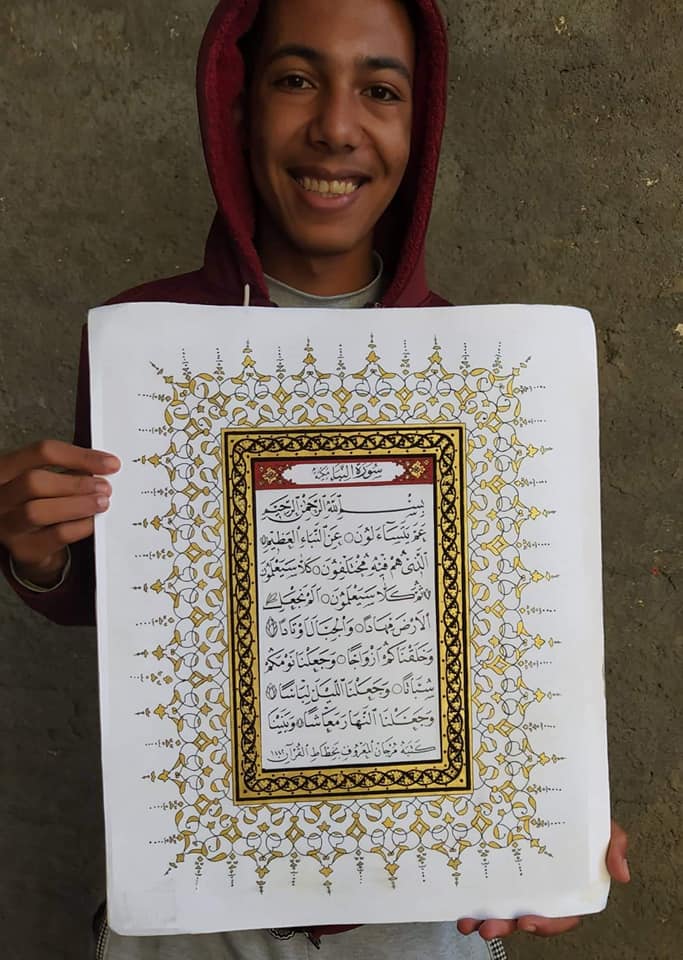 سورة النباء مكية
بِسْمِ اللَّهِ الرَّحْمٰنِ الرَّحِيمِ
عَمَّ يَتَسَآءَلُونَ ۝ عَنِ النَّبَاءِ الْعَظِيمِ ۝
الَّذِي هُمْ فِيهِ مُخْتَلِفُونَ ۝ كَلَّا سَيَعْلَمُونَ
۝ ثُمَّ كَلَّا سَيَعْلَمُونَ ۝ اَلَمْ نَجْعَلِ
الْاَرْضَ مِهَادًا ۝ وَالْجِبَالَ اَوْتَادًا ۝
وَخَلَقْنَاكُمْ اَزْوَاجًا ۝ وَجَعَلْنَا نَوْمَكُمْ
سُبَاتًا ۝ وَجَعَلْنَا اللَّيْلَ لِبَاسًا ۝
وَجَعَلْنَا النَّهَارَ مَعَاشًا ۝ وَبَنَيْنَا
كتبه مرجان المعروف بخطاط القرآن